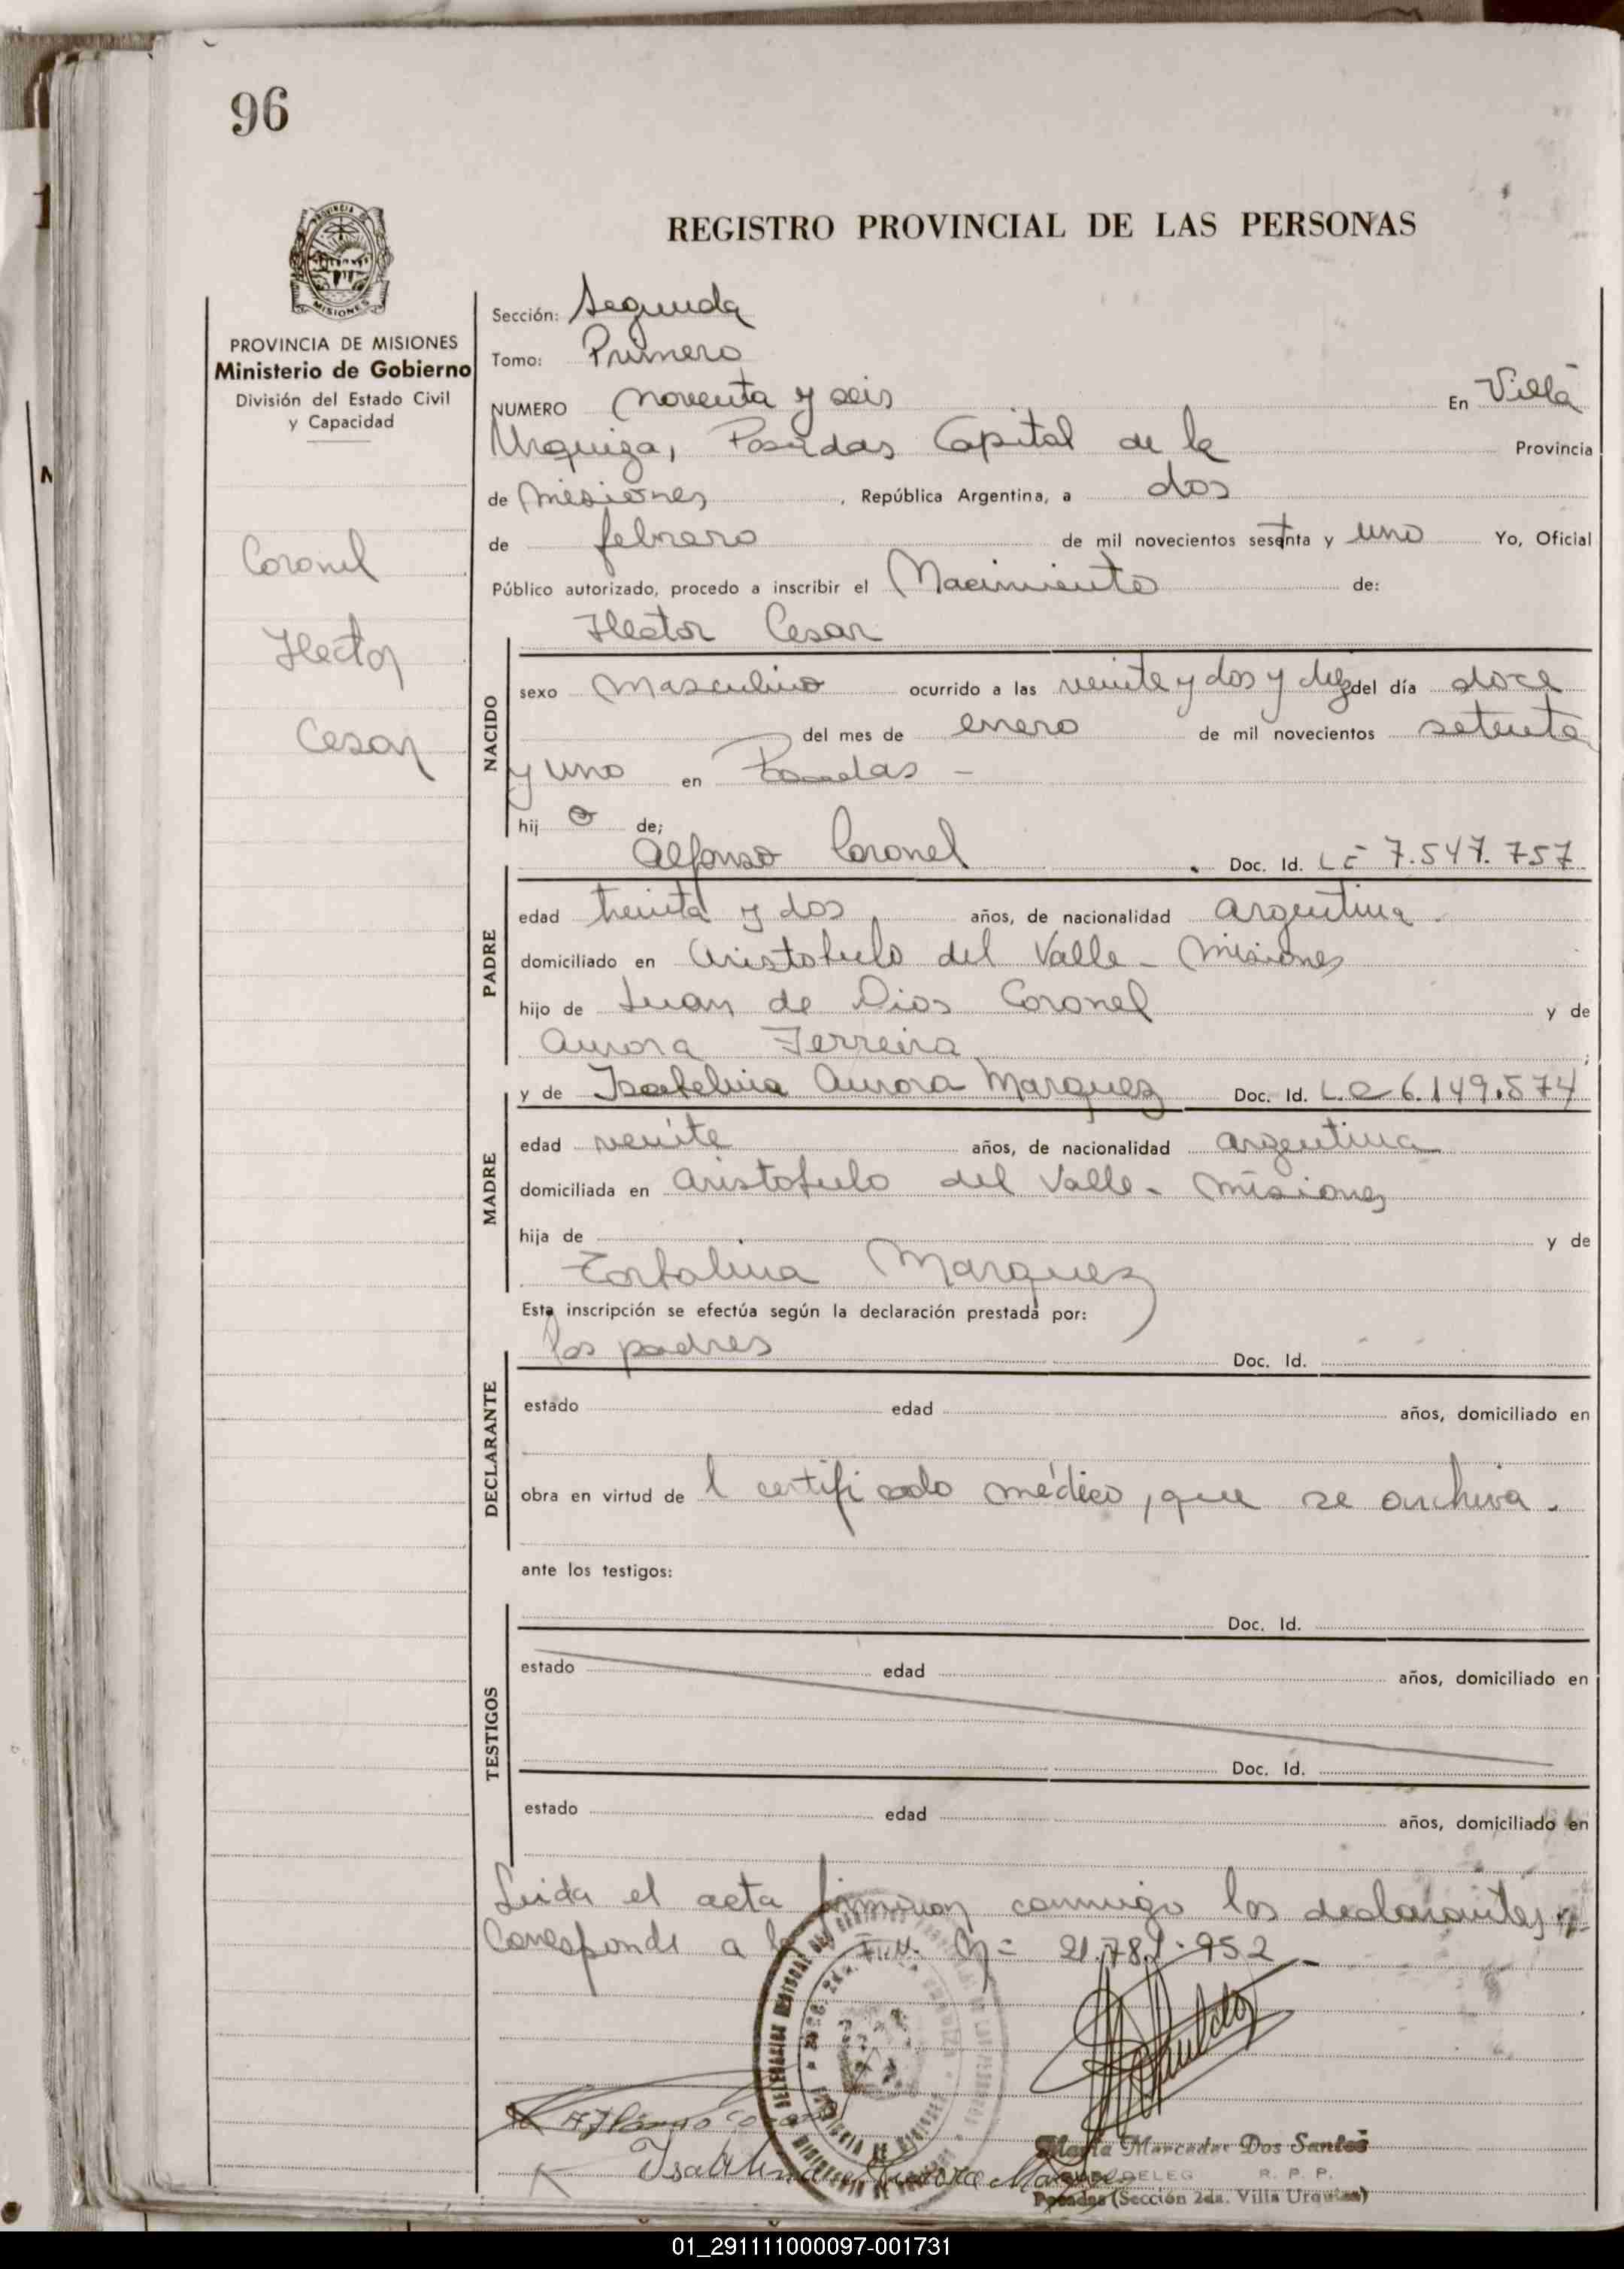 96
PROVINCIA DE
MISIONES
PROVINCIA DE MISIONES
Ministerio de Gobierno
División del Estado Civil
y Capacidad
Coronel
Hector
Cesar
REGISTRO PROVINCIAL DE LAS PERSONAS
Sección: Segunda
Tomo: Primero
NUMERO noventa y seis En Villa
Urquiza, Posadas Capital de la Provincia
de Misiones, República Argentina, a dos
de febrero de mil novecientos setenta y uno Yo, Oficial
Público autorizado, procedo a inscribir el Nacimiento de:
Hector Cesar
NACIDO
sexo Masculino ocurrido a las veinte y dos y diez del día doce
del mes de enero de mil novecientos setenta
y uno en Posadas -
hij o de;
Alfonso Coronel Doc. Id. LE 7.547.757
PADRE
edad treinta y dos años, de nacionalidad argentina.
domiciliado en Aristobulo del Valle - Misiones
hijo de Juan de Dios Coronel y de
Aurora Ferreira ;
y de Isabelina Aurora Marquez Doc. Id. L.C 6.149.574
MADRE
edad veinte años, de nacionalidad argentina
domiciliada en Aristobulo del Valle - Misiones
hija de y de
Marquez
Esta inscripción se efectúa según la declaración prestada por:
los padres Doc. Id.
DECLARANTE
estado edad años, domiciliado en
obra en virtud de l certificado médico, que se archiva.
ante los testigos:
Doc. Id.
TESTIGOS
estado edad años, domiciliado en
Doc. Id.
estado edad años, domiciliado en
Leida el acta firman conmigo los declarantes
Corresponde a la
Alfonso
Isabelina Aurora
Maria Mercedes Dos Santos
DELEG R. P. P.
Posadas (Sección 2da. Villa Urquiza)
01_291111000097-001731